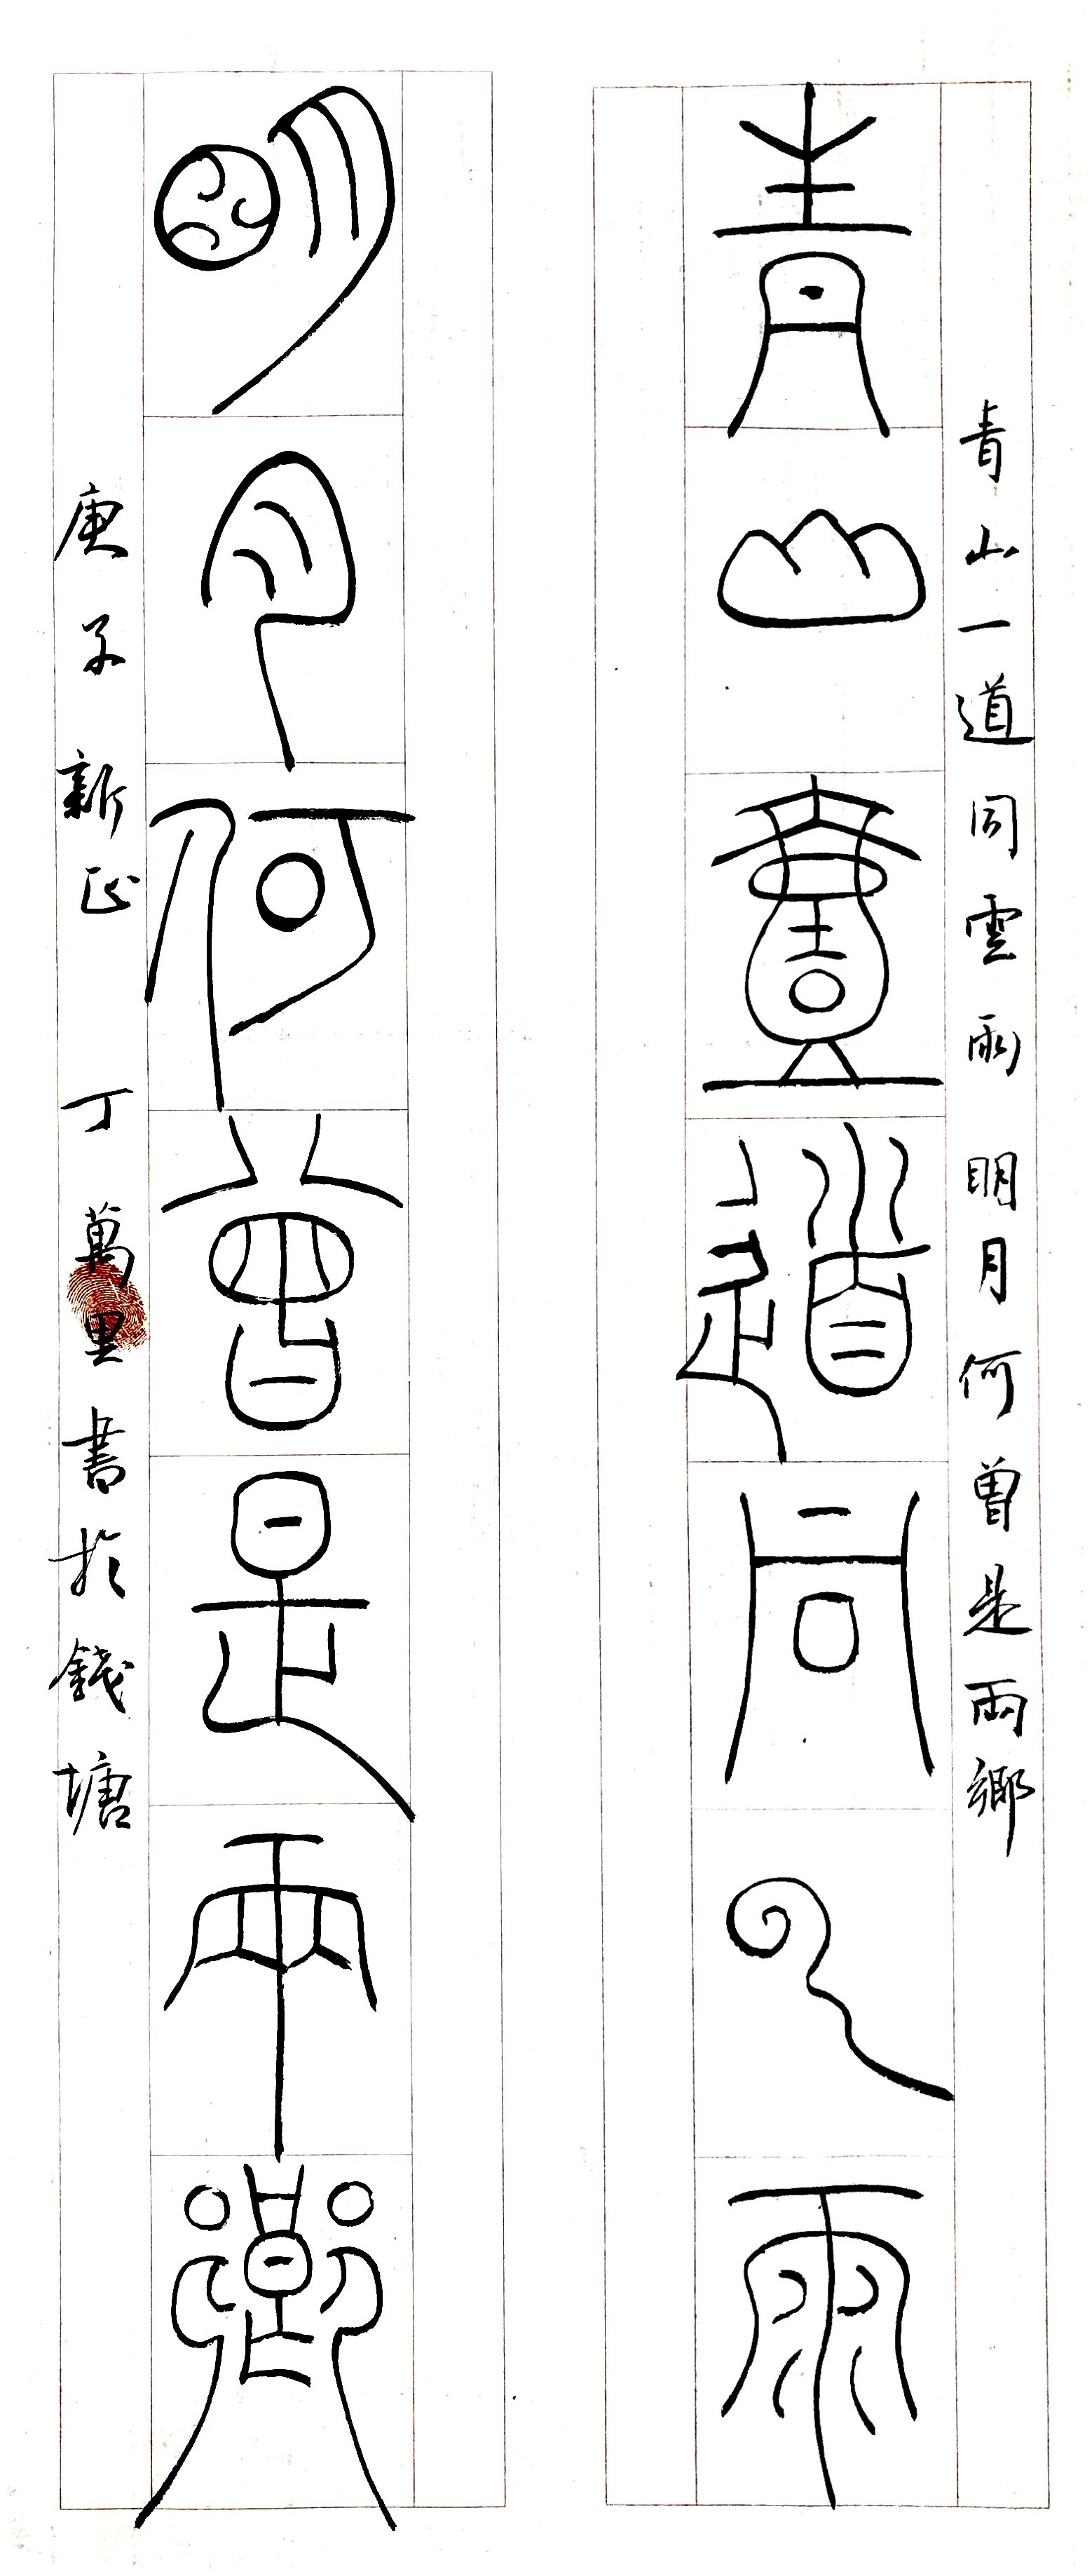 青山一道同雲雨 明月何曾是兩鄉
青山壹道同云雨
明月何曾是兩鄉
庚子新正 丁萬里書於錢塘